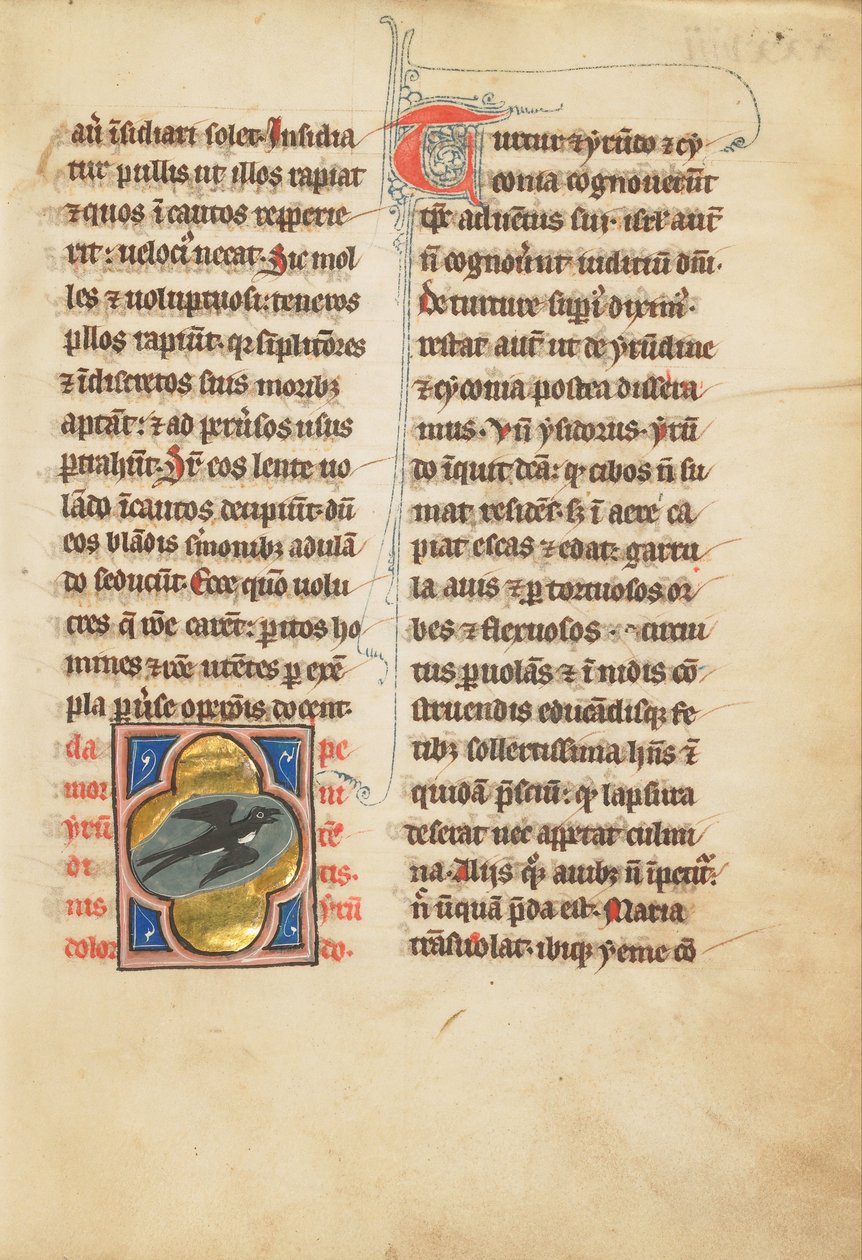 aūͥ īsidiari solet. Insidia
tur pullis ut illos rapiat
⁊ quos ī cautos repperie
rit: uelocͥ necat. Sic mol
les ⁊ uoluptuosi: teneros
pllos rapiūt. qr sīplitōres
⁊ īdiscretos suis moribꝫ
aptāt: ⁊ ad peruͥsos usus
ꝑtrahūt. Sr̄ eos lente uo
lādo īcautos decipiūt. dū
eos blādis sͥmonibꝫ adulā
do seducūt. Ecce quō uolu
cres q̄ rōe carēt: ꝑitos ho
mines ⁊ rōe utētes ꝑ exē
pla ꝑuͥse oꝑcōis docent.
da pe
mor ni
yrū tē
di tis.
nis yrū
dolor do.
Turtur ⁊ yrūdo ⁊ cy
conia cognouerūt
tp̄r aduētus sui. isrl̄ aut̄
n̄ cognoūͥnt iuditiū dn̄i.
De turture supͥꝰ diximꝰ.
restat aut̄ ut de yrūdine
⁊ cyconia postea dissera
mus. Vn̄ ysidorus. yrū
do īquit dc̄a: qꝫ cibos n̄ su
mat residēs. sꝫ ī aere ca
piat escas ⁊ edat: garru
la auis ⁊ ꝑ tortuosos or
bes ⁊ flexuosos circui
tus ꝑuolās ⁊ ī nidis cō
struendis educādisqꝫ fe
tibꝫ sollertissima hn̄s ⁊
quiddā p̄sciū: qꝫ lapsura
deserat nec appetat culmi
na. Alijs qͦqꝫ auibꝫ n̄ īpetitͬ.
n̄ ūquā p̄da est. Maria
trāsuolat. ibiqꝫ yeme cō